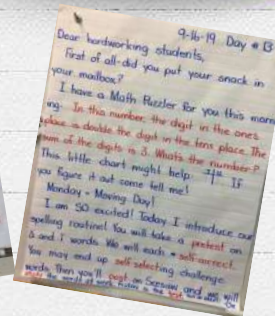 9-16-19 Day # 13
Dear hardworking students,
First of all-did you put your snack in
your mailbox?
I have a Math Puzzler for you this morn
ing. In this number the digit in the ones
place is double the digit in the tens place. The
sum of the digits is 3. What's the number?
This little chart might help: If
you figure it out come tell me!
Monday - Moving Day!
I am SO excited! Today I introduce our
spelling routine! You will take a pretest on
S and I words. We will each self correct.
You may end up self selecting challenge
words. Then you'll post on Seesaw and we will